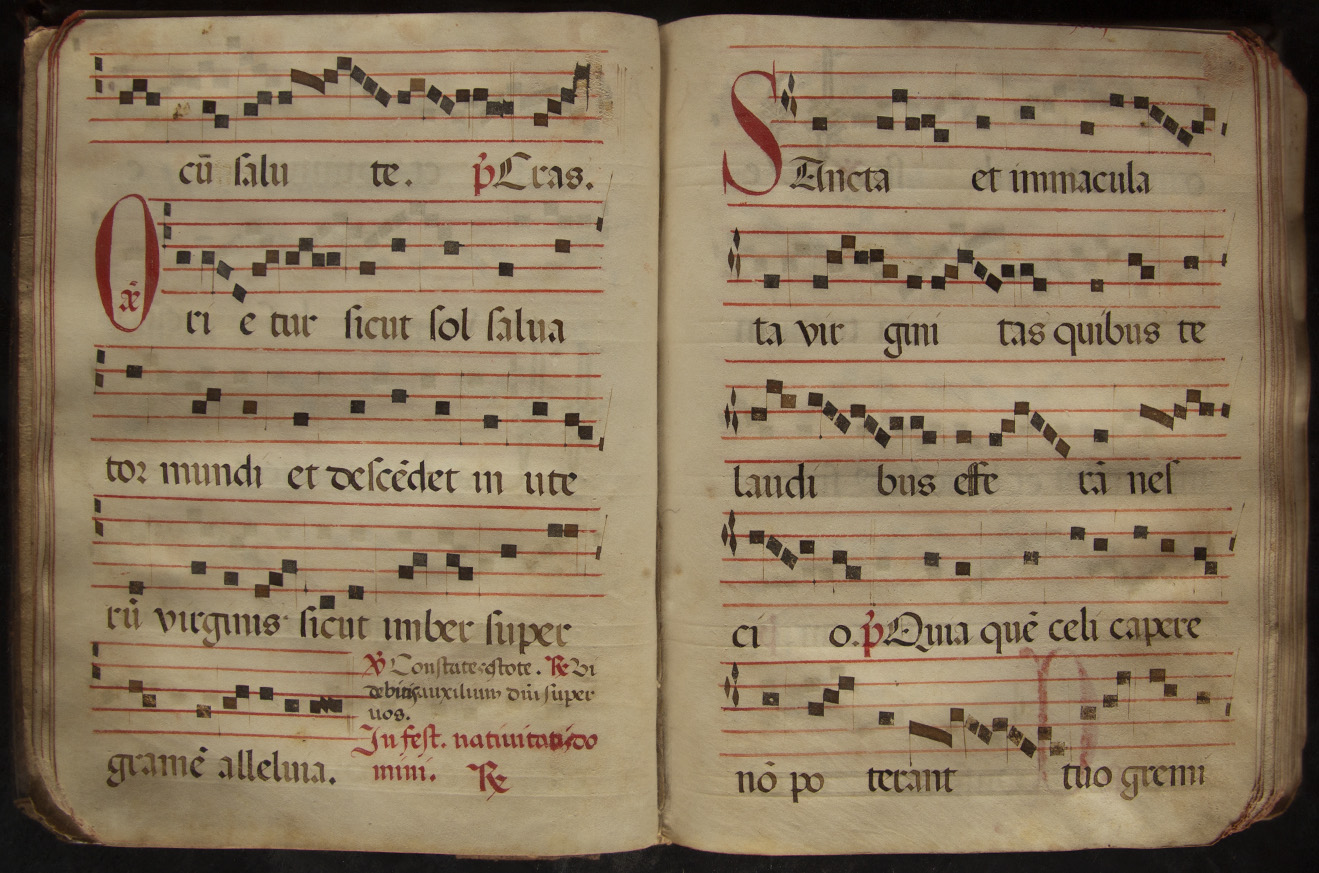 cū salu te. p̄ Cras.
O
añ
ri e tur sicut sol salua
tor mundi et descēdet in ute
rū virginis sicut imber super
℣ Constātes estote. ℟ Vi
debitis auxilium dn̄i super
uos.
In fest. natiuitatis do
mini. ℟
gramē alleluia.
SAncta et immacula
ta vir gini tas quibus te
laudi bus effe rā nes
ci o. p̄ Quia quē celi capere
nō po terant tuo gremi